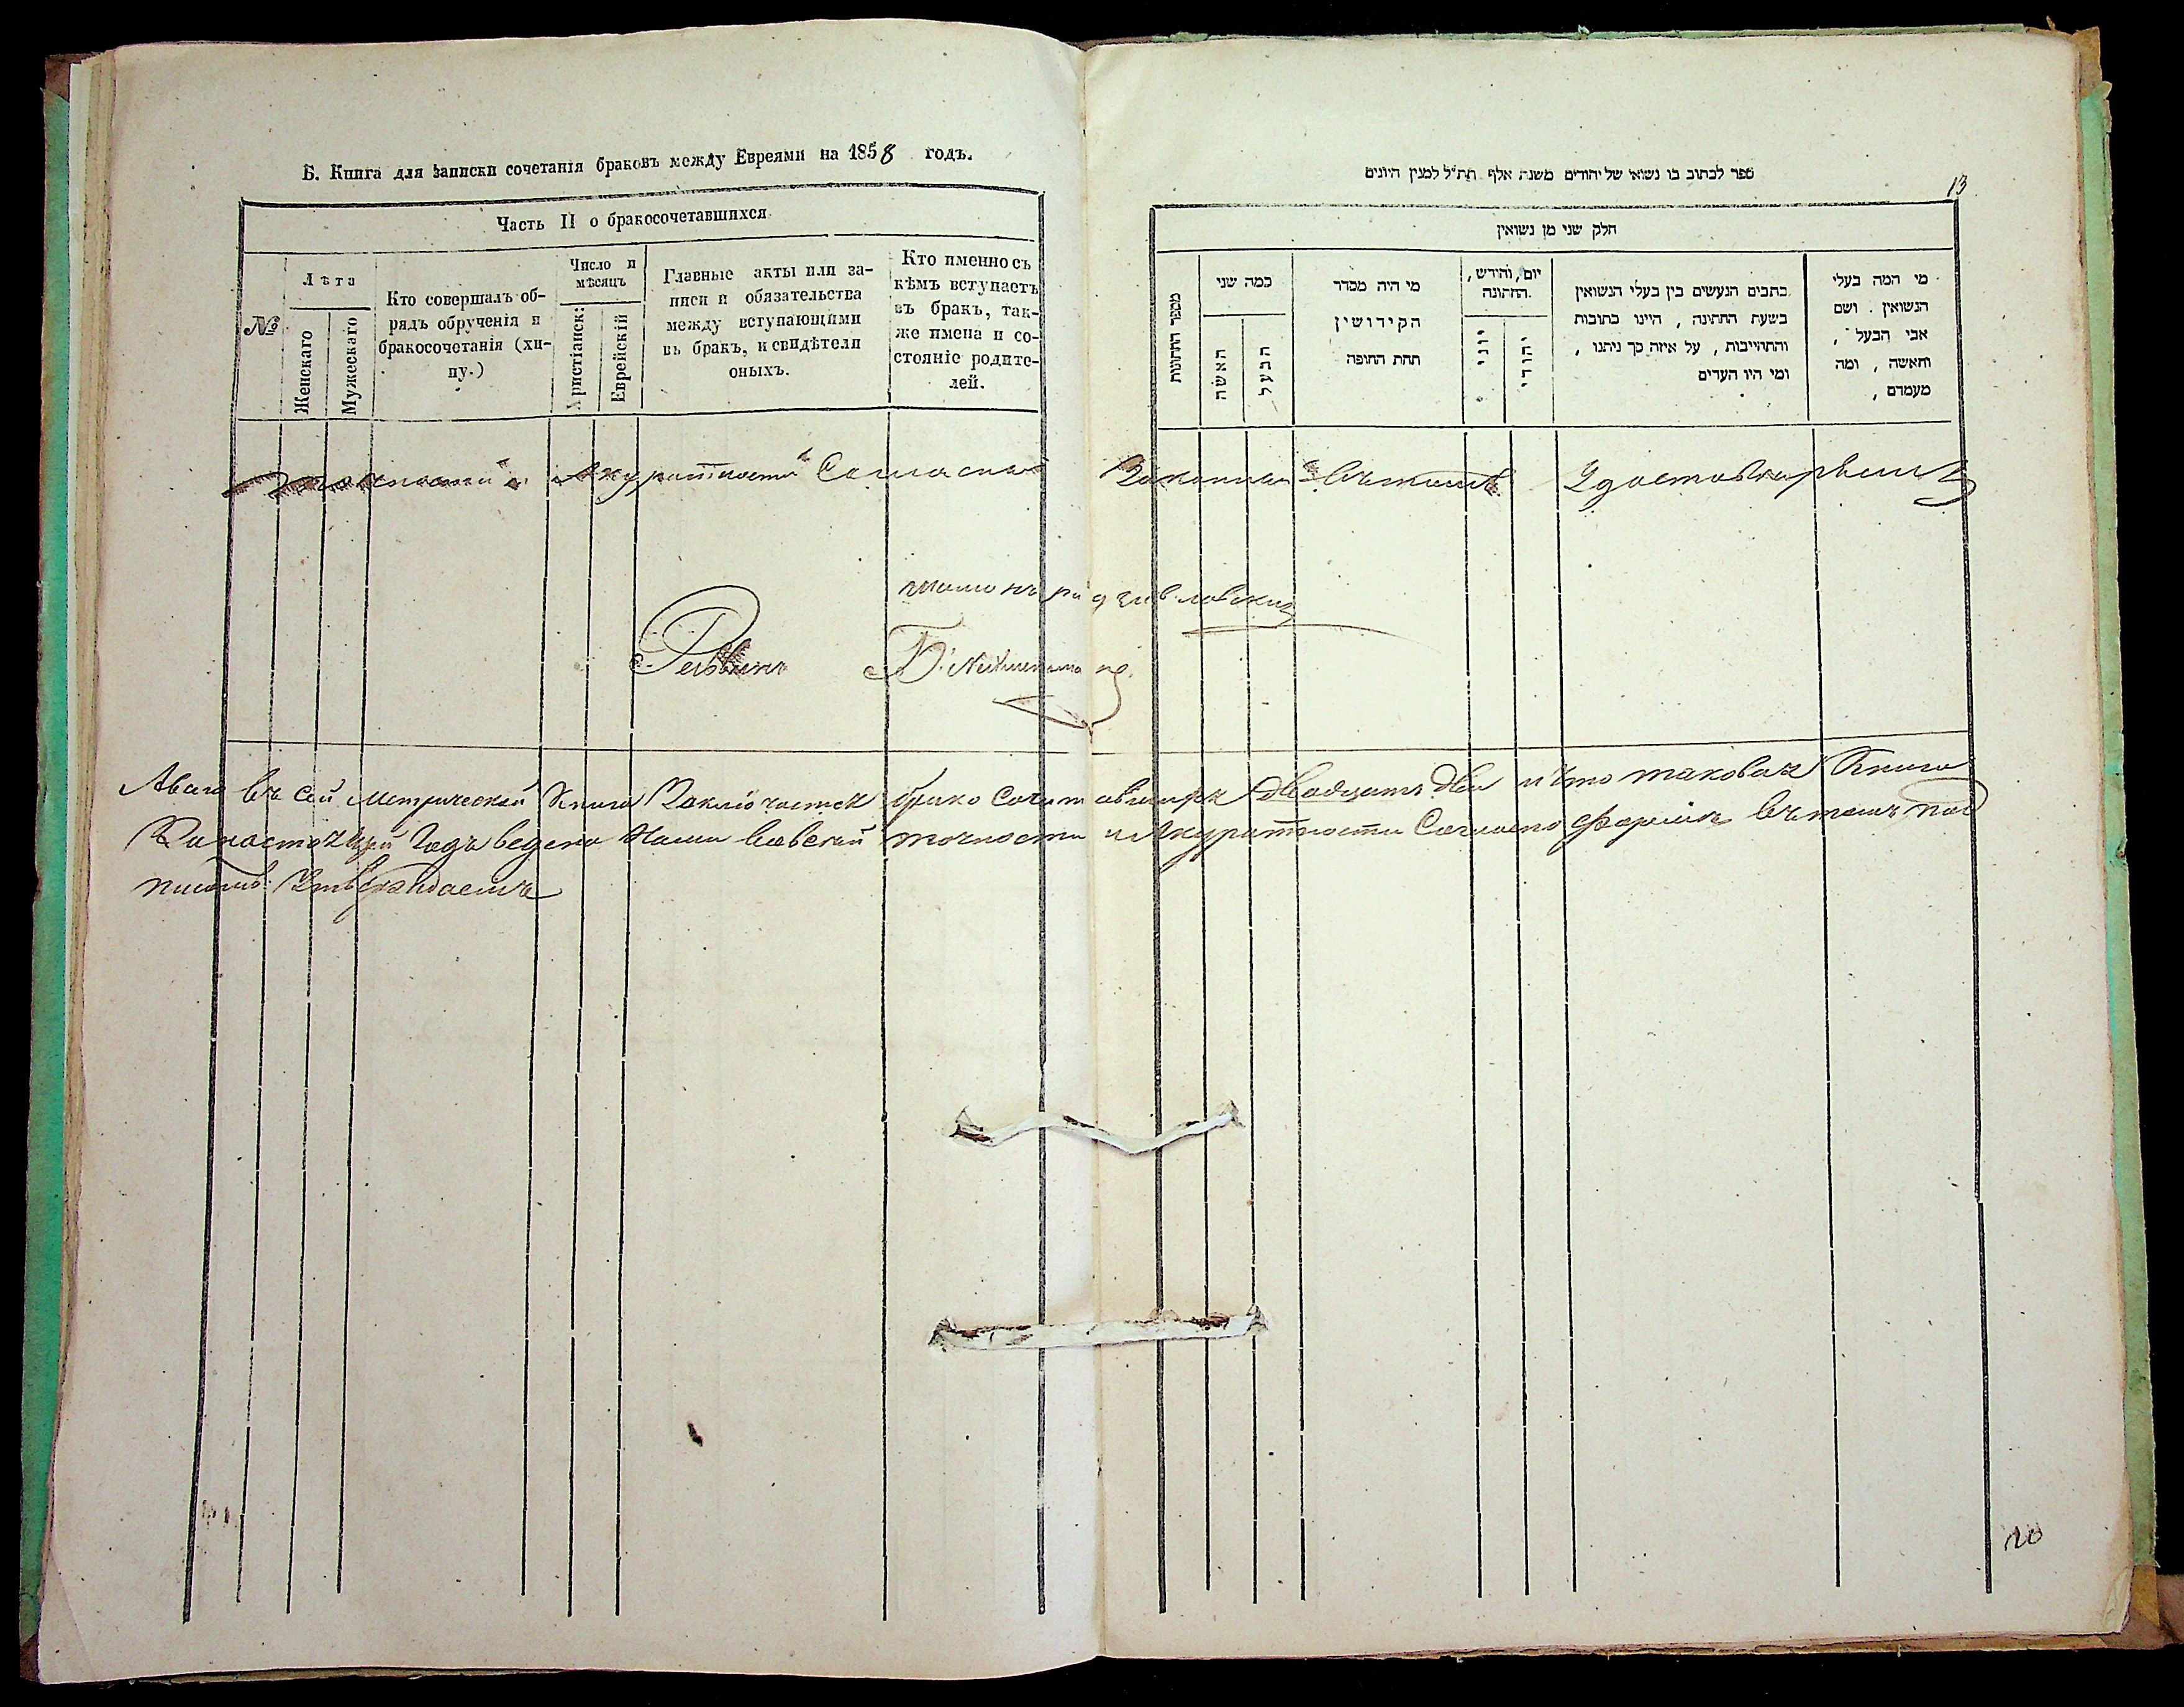 Б. Книга для записки сочетанія браковъ между Евреями на 1858 годъ.
Часть II о бракосочетавшихся
№
Лѣта
Женскаго
Мужескаго
Кто совершалъ об-
рядъ обрученія и
бракосочетанія (хи-
пу.)
Число и
мѣсяцъ
Христіанск:
Еврейскій
Главные акты или за-
писи и обязательства
между вступающими
въ бракъ, и свидѣтели
оныхъ.
Кто именно съ
кѣмъ вступаетъ
въ бракъ, так-
же имена и со-
стояніе родите-
лей.
ספר לכתוב בו נשואי של יהודים משנת אלף תת״ל למנין היונים
13
חלק שני מן נשואין
מספר החתונות
כמה שני
האשה
הבעל
מי היה מסדר
הקידושין
תחת החופה
יום, וחודש,
החתונה.
יוני
יהודי
כתבים הנעשים בין בעלי הנשואין
בשעת החתונה, היינו כתובות
והתחייבות, על איזה סך ניתנו,
ומי היו העדים
מי המה בעלי
הנשואין. ושם
אבי הבעל,
והאשה, ומה
מעמדם,
Акуратности Согласно Законная въ томъ Удостовѣряемъ
Равинъ
Аваго въ сей Метрической Книги Заключается брако Сочетавшихся двадцать два и что таковая Книга
За настоящій Годъ ведена Нами вовсей точности и Акуратности Согласно формѣ въ томъ под
писомъ Утверждаемъ
20